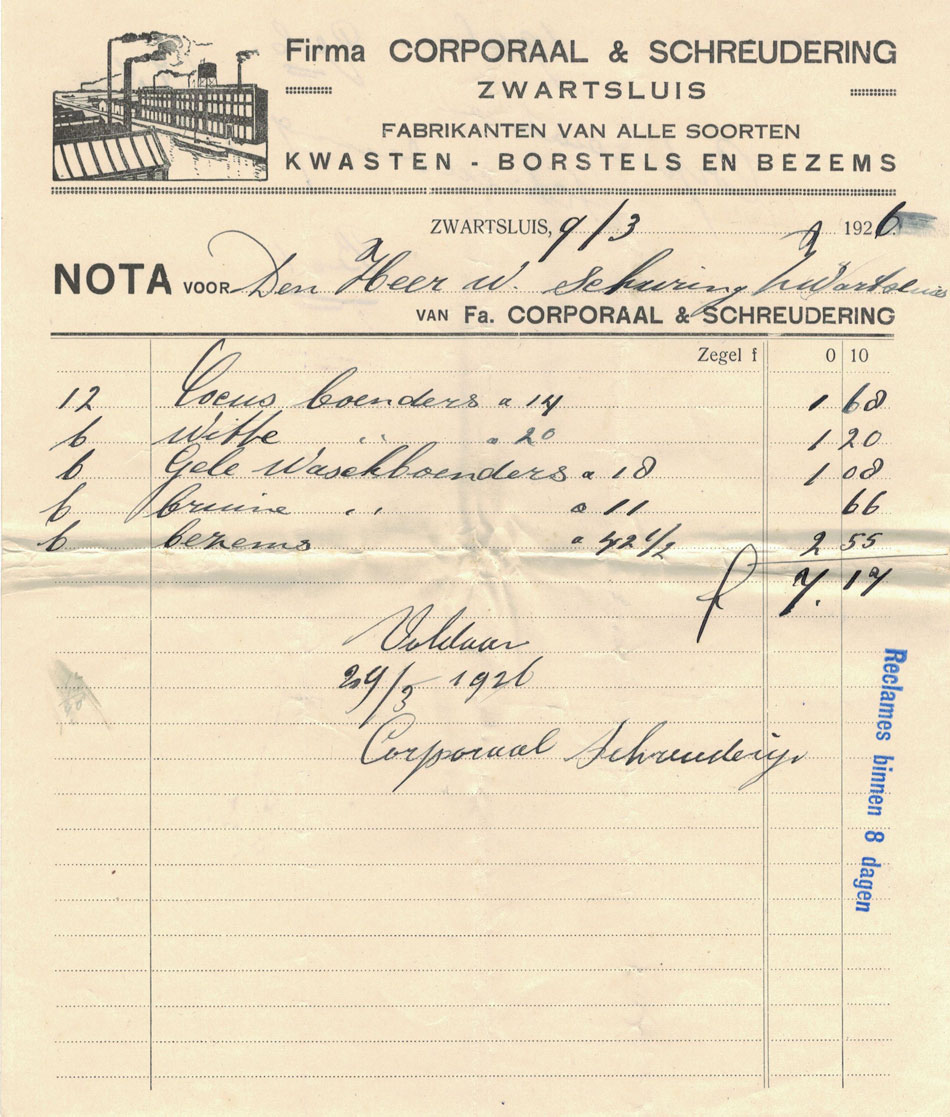 Firma CORPORAAL & SCHREUDERING
ZWARTSLUIS
FABRIKANTEN VAN ALLE SOORTEN
KWASTEN - BORSTELS EN BEZEMS
ZWARTSLUIS, 9/3 1926.
NOTA VOOR Den Heer W. Schuring Zwartsluis
VAN Fa. CORPORAAL & SCHREUDERING
Zegel f 0 10
12 Cocus boenders a 14 1 68
6 Witte " a 20 1 20
6 Gele Waschboenders a 18 1 08
6 bruine " a 11 66
6 bezems a 42 1/2 2 55
f 7.17
Voldaan
29/3 1926
Corporaal Schreudering
Reclames binnen 8 dagen